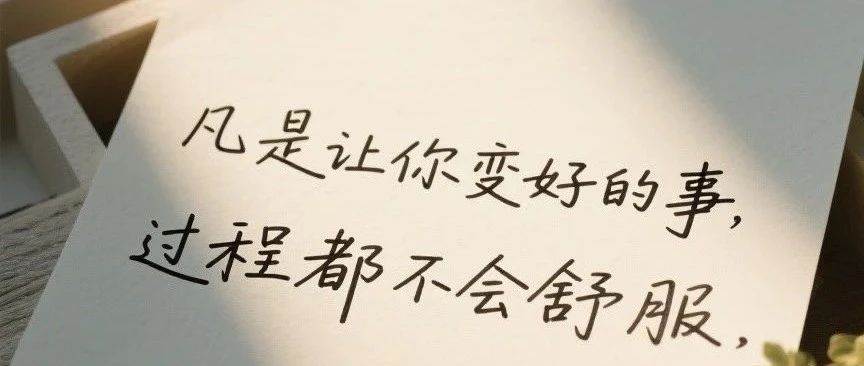 凡是让你变好的事，
过程都不会舒服，